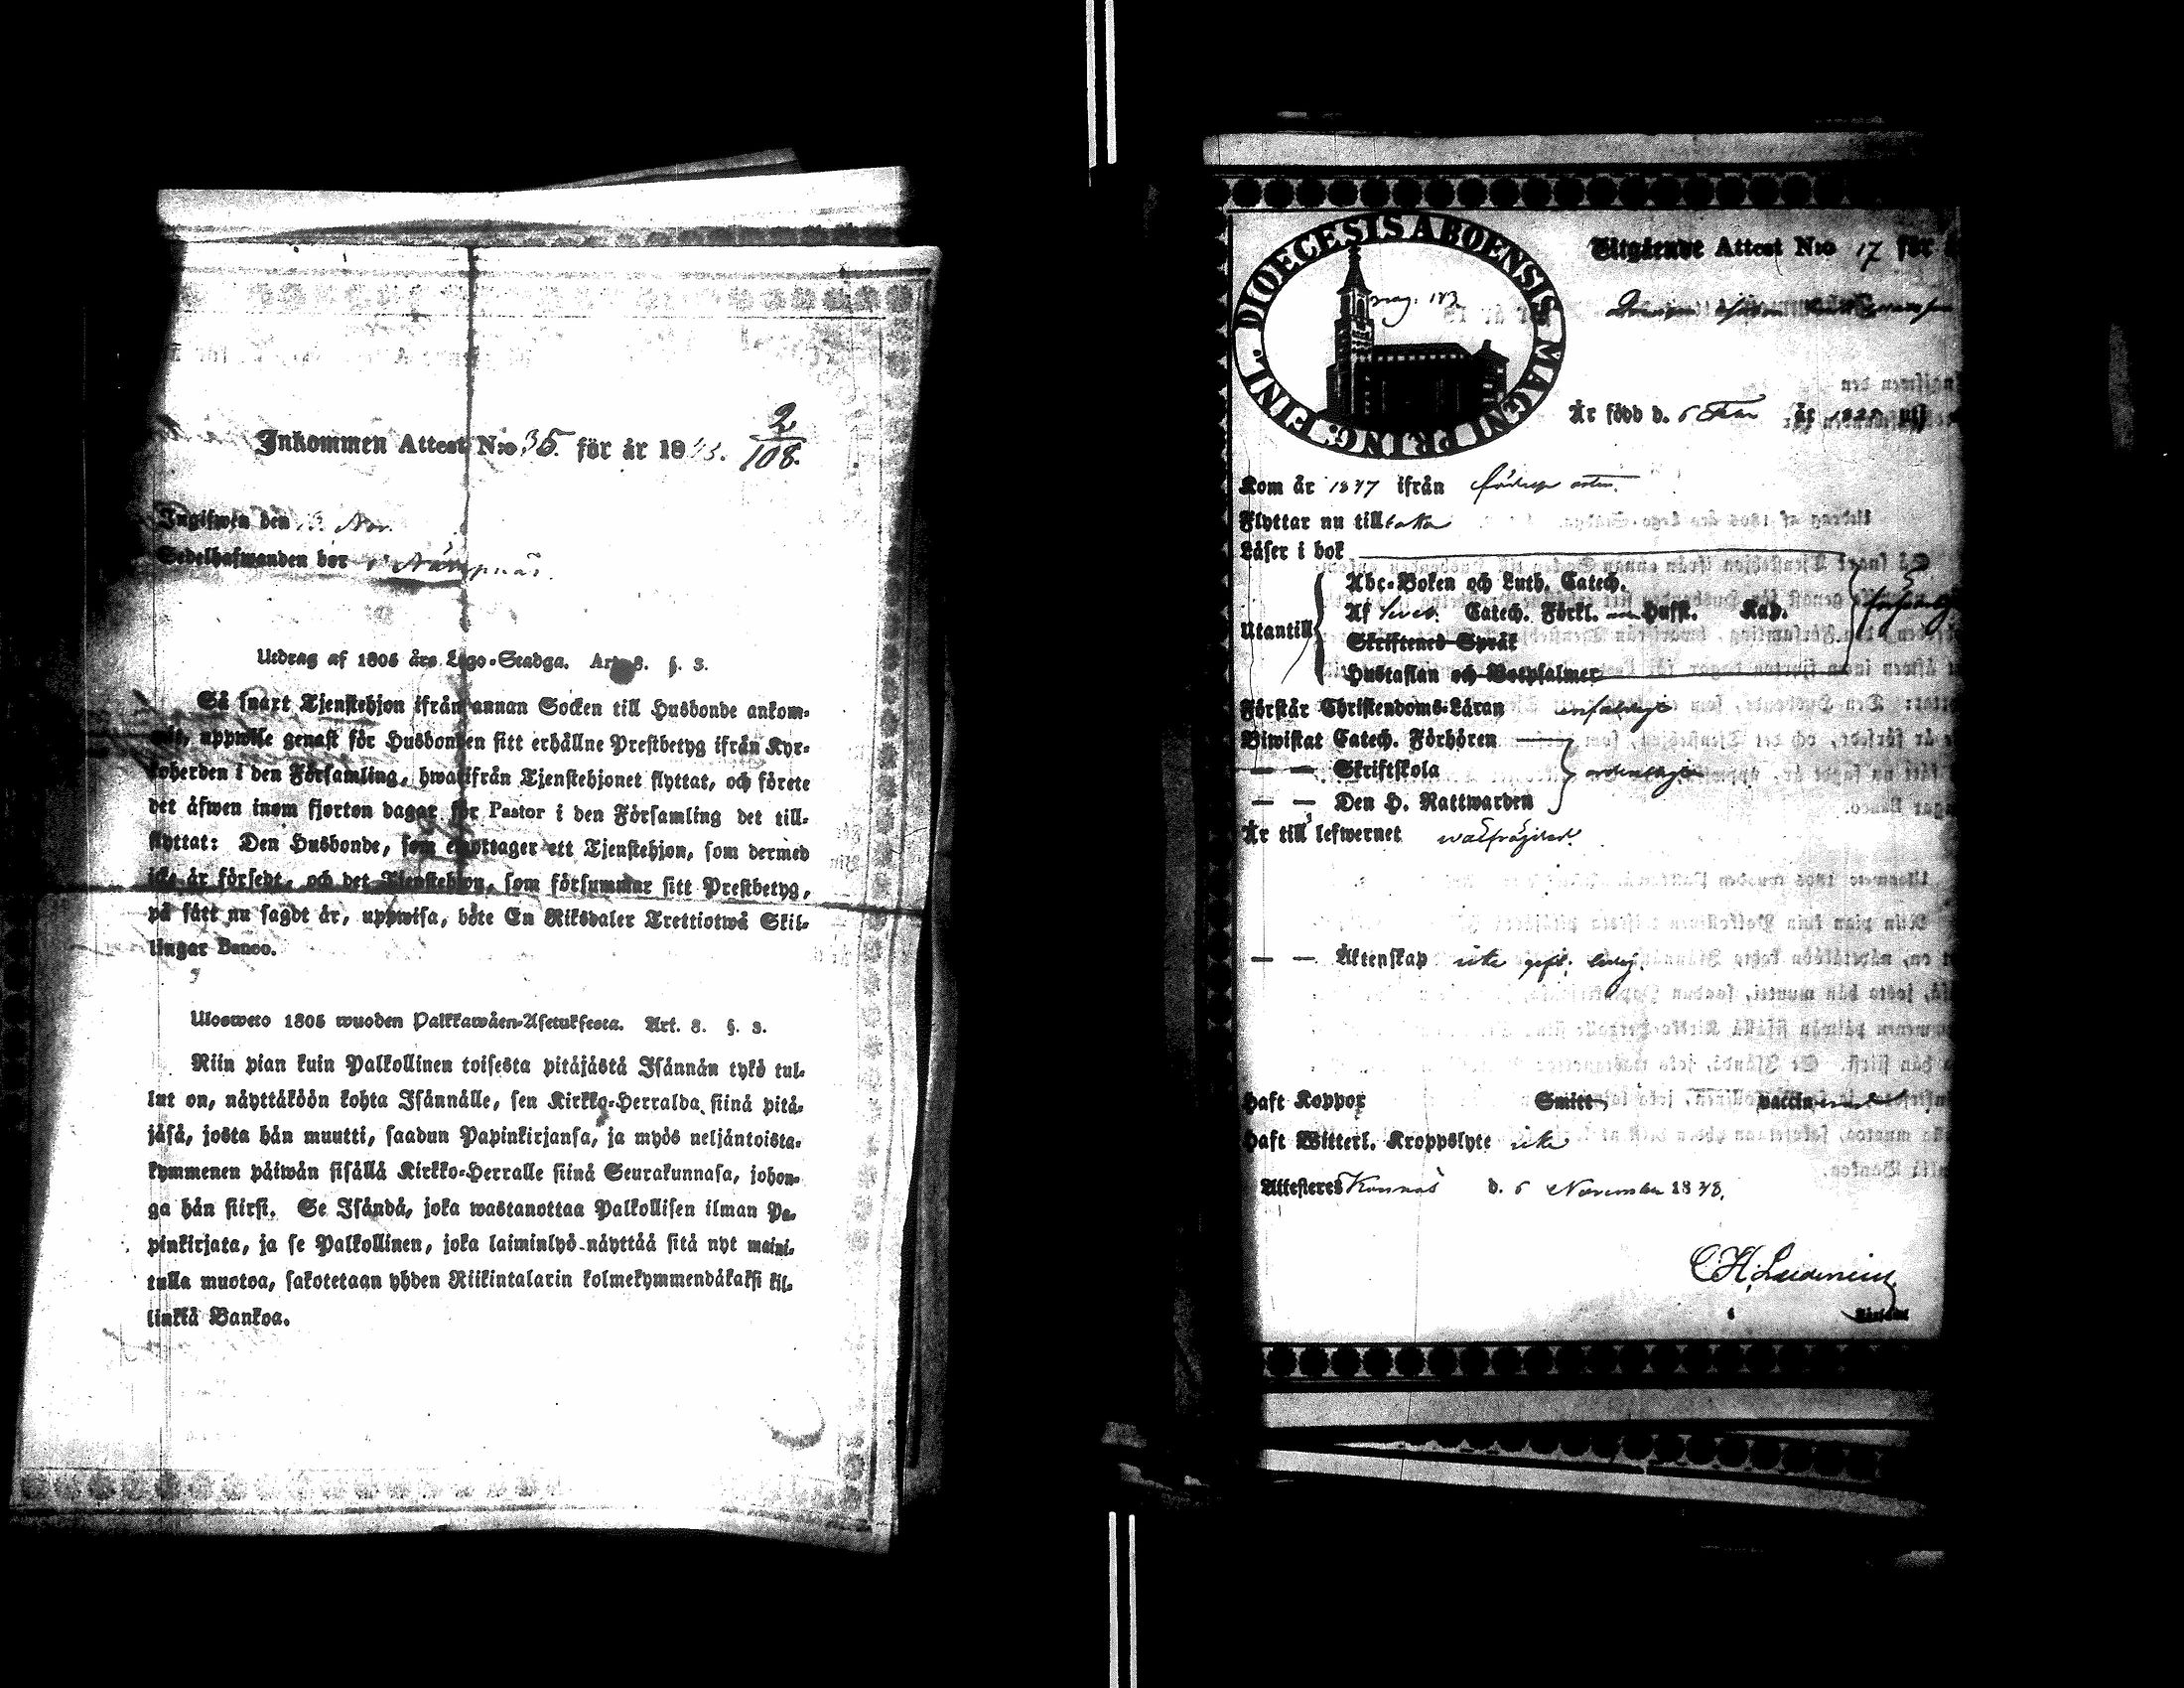 Inkommen Attest N:o 35. för år 18
2
108.
Ingifwen den Nov.
Sedelhafwanden bor i
Utdrag af 1805 års Lego-Stadga. Art. 8. §. 3.
Så snart Tjenstehjon ifrån annan Socken till Husbonde ankom-
mit, uppwise genast för Husbonden sitt erhållne Prestbetyg ifrån Kyr-
koherden i den Församling, hwarifrån Tjenstehjonet flyttat, och förete
det äfwen inom fjorton dagar för Pastor i den Församling det till-
flyttat: Den Husbonde, som emottager ett Tjenstehjon, som dermed
icke är försedt, och det Tjenstehjon, som försummar sitt Prestbetyg,
på sätt nu sagdt är, uppwisa, böte En Riksdaler Trettiotwå Skil-
lingar Banco.
Uloswето 1805 wuoden Palkkawäen-Asetuksesta. Art. 8. §. 3.
Niin pian kuin Palkollinen toisesta pitäjästä Isännän tykö tul-
lut on, näyttäköön kohta Isännälle, sen Kirkko-Herralda siinä pitä-
jäsä, josta hän muutti, saadun Papinkirjansa, ja myös neljäntoista-
kymmenen päiwän sisällä Kirkko-Herralle siinä Seurakunnasa, johon-
ga hän siirsi. Se Isändä, joka wastanottaa Palkollisen ilman Pa-
pinkirjata, ja se Palkollinen, joka laiminlyö näyttää sitä nyt maini-
tulla muotoa, sakotetaan yhden Riikintalarin kolmekymmendäkaksi kil-
linkiä Bankoa.
DIOECESIS ABOENSIS MAGNI PRINC. FINL.
Utgående Attest N:o 17 för
Är född d. 6 år
Kom år 1847 ifrån
Flyttar nu till
Läser i bok
Utantill
Abc-Boken och Luth. Catech.
Af Catech. Förkl. Hufst. Kap.
Skriftenes Språk
Hustaflan och Botpsalmer
Förstår Christendoms-Läran
Biwistat Catech. Förhören
— — Skriftskola
— — Den H. Nattwarden
ordentligen
Är till lefwernet wälfrägdad.
— — Äktenskap icke gift; ledig.
Haft Koppor Smitt vaccin
Haft Witterl. Kroppslyte icke
Attesteres Korsnäs d. 6 November 1848.